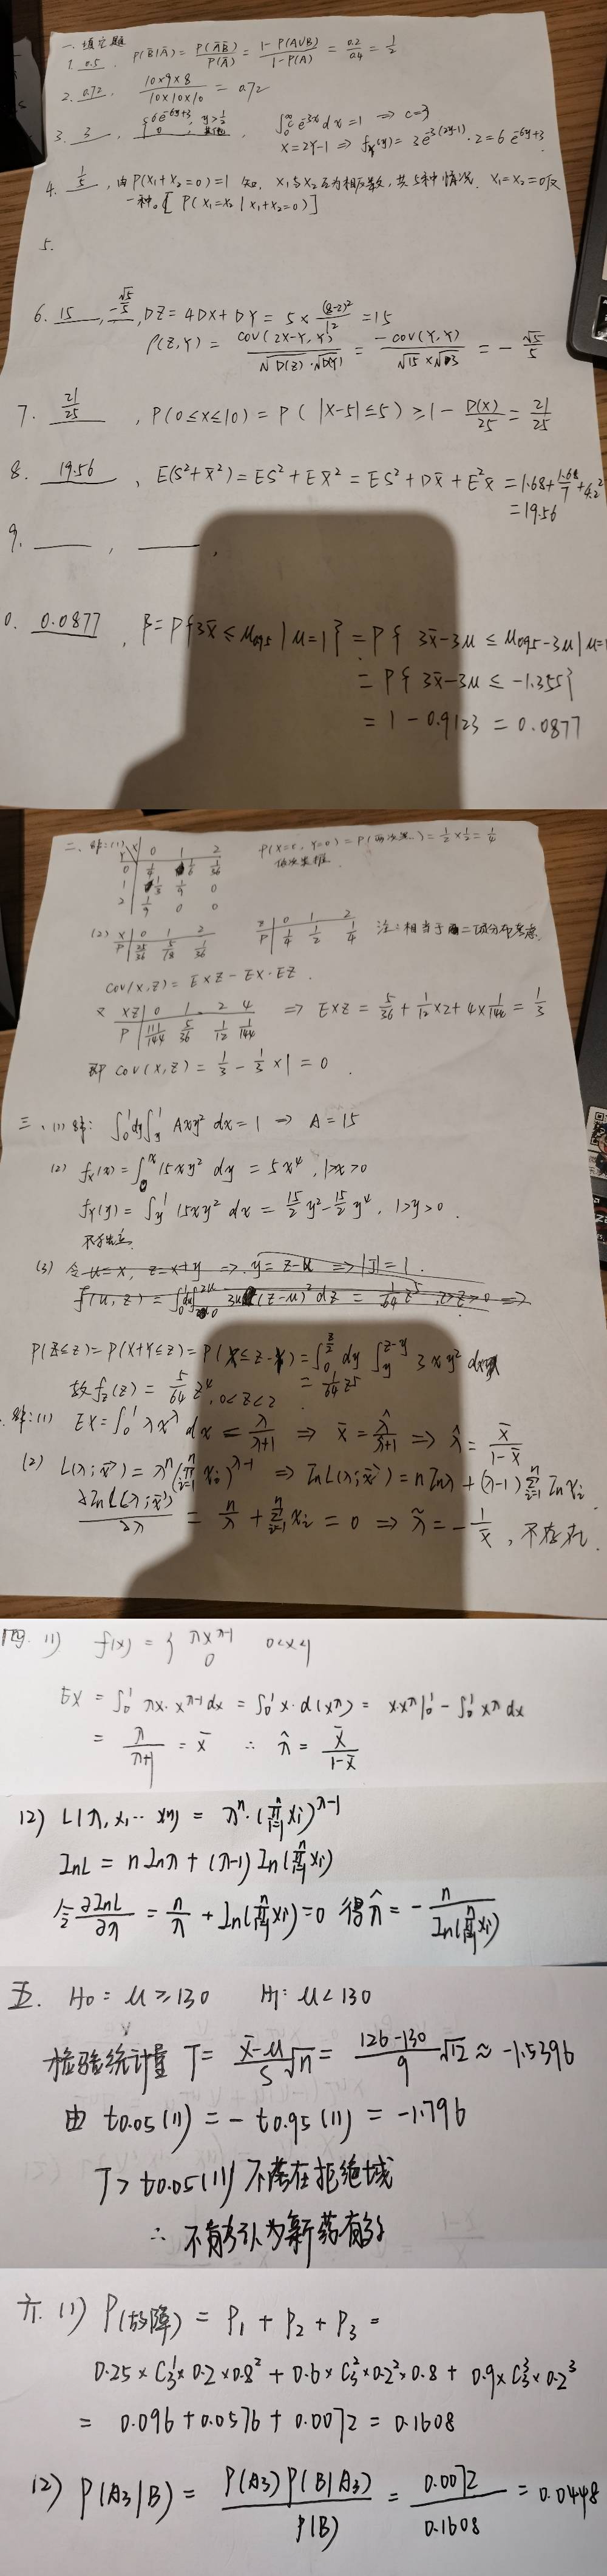 一、填空题
1. 0.5 . P(B̄|Ā) = P(ĀB̄)/P(Ā) = 1-P(A∪B)/1-P(A) = 0.2/0.4 = 1/2
2. 0.72 . 10×9×8/10×10×10 = 0.72
3. 3 , { 6e^{-6y+3}, y>1/2 0, 其他 . ∫₀^∞ c e^{-3x} dx = 1 ⇒ c=3
x=2Y-1 ⇒ fY(y) = 3e^{-3(2y-1)}·2 = 6e^{-6y+3}
4. 1/5 , 由P(X₁+X₂=0)=1 知, X₁与X₂互为相反数, 共5种情况. X₁=X₂=0仅
一种。[ P(X₁=X₂ | X₁+X₂=0) ]
5.
6. 15 , -√5/5 , DZ = 4DX + DY = 5 × (8-2)²/12 = 15
ρ(Z,Y) = COV(2X-Y, Y)/√D(Z)·√D(Y) = -COV(Y,Y)/√15×√3 = -√5/5
7. 21/25 , P(0≤X≤10) = P( |X-5|≤5 ) ≥ 1 - D(X)/25 = 21/25
8. 19.56 , E(S²+X̄²) = ES² + EX̄² = ES² + DX̄ + E²X̄ = 1.68 + 1.68/7 + 4.2²
= 19.56
9. ,
0. 0.0877 , β = P{3X̄ ≤ μ0.95 | μ=1} = P{ 3X̄-3μ ≤ μ0.95-3μ | μ=1
= P{ 3X̄-3μ ≤ -1.355}
= 1 - 0.9123 = 0.0877
二、解:(1) Y\X 0 1 2 P(X=0, Y=0) = P( ) = 1/2 × 1/2 = 1/4
0 1/4 1/6 1/36 依次类推.
1 1/3 1/9 0
2 1/9 0 0
(2) X 0 1 2 Z 0 1 2 注:相当于二项分布考虑.
P 25/36 5/18 1/36 P 1/4 1/2 1/4
cov(X,Z) = EXZ - EX·EZ .
又 XZ 0 1 2 4 ⇒ EXZ = 5/36 + 1/12 × 2 + 4 × 1/144 = 1/3
P 111/144 5/36 1/12 1/144
即 cov(X,Z) = 1/3 - 1/3 × 1 = 0 .
三、(1) 解: ∫₀¹dy∫_y¹ Axy² dx = 1 ⇒ A = 15
(2) fX(x) = ∫₀^x 15xy² dy = 5x⁴, 1>x>0
fY(y) = ∫_y¹ 15xy² dx = 15/2 y² - 15/2 y⁴, 1>y>0 .
不独立.
(3) 令 u=x, z=x+y ⇒ y=z-u ⇒ |J|=1 .
P(Z≤z) = P(X+Y≤z) = P(X≤z-Y) = ∫₀^{z/2} dy ∫_y^{z-y} 3xy² dx
故 fZ(z) = 5/64 z⁴, 0<z<2 = 1/64 z⁵
. 解:(1) EX = ∫₀¹ λx^λ dx = λ/λ+1 ⇒ X̄ = λ̂/λ̂+1 ⇒ λ̂ = X̄/1-X̄
(2) L(λ;x⃗) = λⁿ(∏_{i=1}^n xᵢ)^{λ-1} ⇒ lnL(λ;x⃗) = nlnλ + (λ-1)∑_{i=1}^n lnxᵢ
∂lnL(λ;x⃗)/∂λ = n/λ + ∑_{i=1}^n xᵢ = 0 ⇒ λ̃ = -1/x̄ , 不存在.
四. (1) f(x) = { λx^{λ-1} 0<x<1 0
EX = ∫₀¹ λx·x^{λ-1}dx = ∫₀¹ x·d(x^λ) = x·x^λ|₀¹ - ∫₀¹ x^λ dx
= λ/λ+1 = X̄ ∴ λ̂ = X̄/1-X̄
(2) L(λ, x₁…xn) = λⁿ·(∏_{i=1}^n xi)^{λ-1}
lnL = nlnλ + (λ-1)ln(∏_{i=1}^n xi)
令 ∂lnL/∂λ = n/λ + ln(∏_{i=1}^n xi) = 0 得 λ̂ = - n/ln(∏_{i=1}^n xi)
五. H₀: μ≥130 H₁: μ<130
检验统计量 T = X̄-μ/S √n = 126-130/9 √12 ≈ -1.5396
由 t0.05(11) = -t0.95(11) = -1.796
T > t0.05(11) 不落在拒绝域
∴ 不能够认为新药有效
六. (1) P(故障) = P₁ + P₂ + P₃ =
0.25 × C₃¹ × 0.2 × 0.8² + 0.6 × C₃² × 0.2² × 0.8 + 0.9 × C₃³ × 0.2³
= 0.096 + 0.0576 + 0.0072 = 0.1608
(2) P(A₃|B) = P(A₃)P(B|A₃)/P(B) = 0.0072/0.1608 = 0.0448